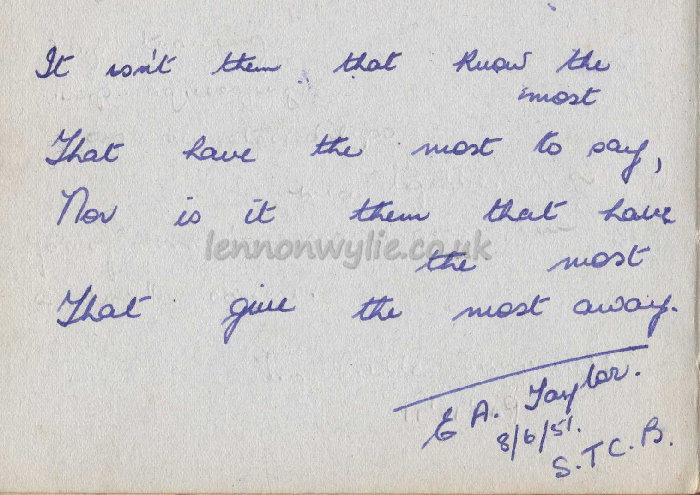 It isn't them that know the
most
That have the most to say,
Nor is it them that have
lennonwylie.co.uk
the most
That give the most away.
E A. Taylor.
8/6/51.
S.T.C.B.